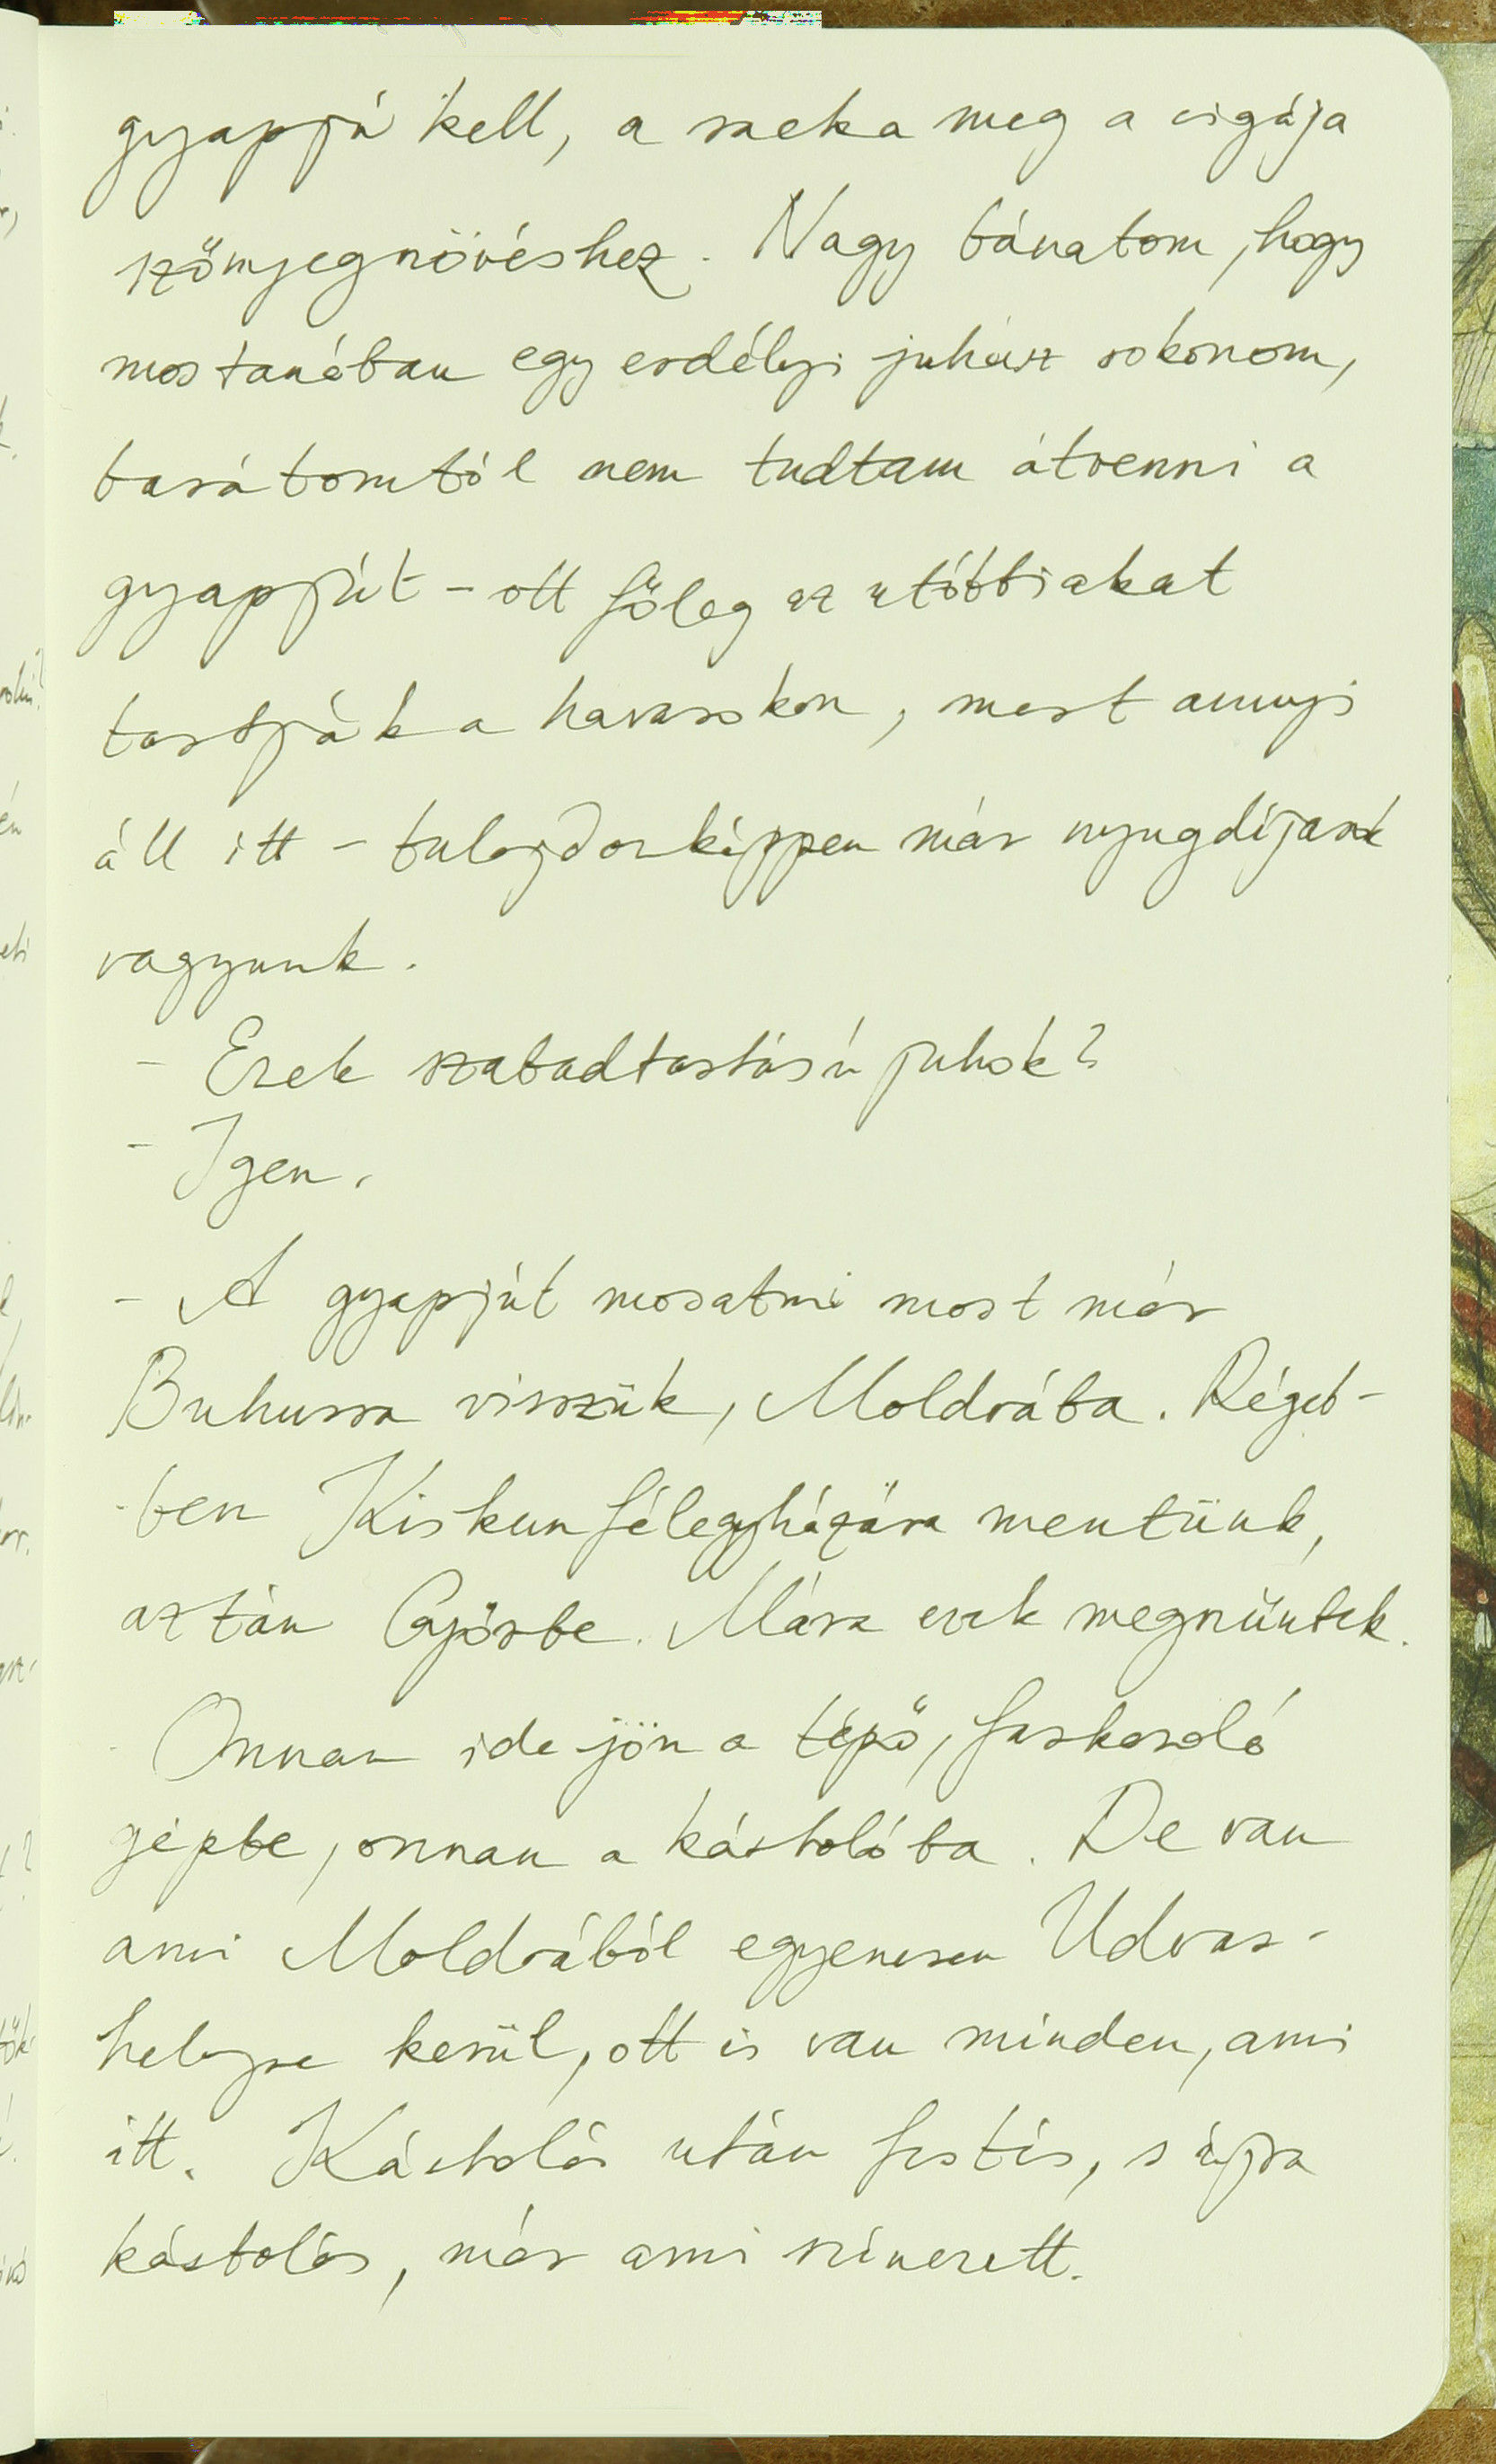 gyapjú kell, a racka meg a cigája
szőnyegnövéshez. Nagy bánatom, hogy
mostanában egy erdélyi juhász rokonom,
barátomtól nem tudtam átvenni a
gyapjút – ott főleg az utóbbiakat
tartják a havasokon, mert annyi
áll itt – tulajdonképpen már nyugdíjasok
vagyunk.
– Ezek szabadtartású juhok?
– Igen.
– A gyapjút mosatni most már
Buhusra visszük, Moldvába. Régeb-
-ben Kiskunfélegyházára mentünk,
aztán Győrbe. Mára ezek megszűntek.
Onnan ide jön a tépő, farkasoló
gépbe, onnan a kártolóba. De van
ami Moldvából egyenesen Udvar-
helyre kerül, ott is van minden, ami
itt. Kártolás után festés, s újra
kártolás, már ami színezett.